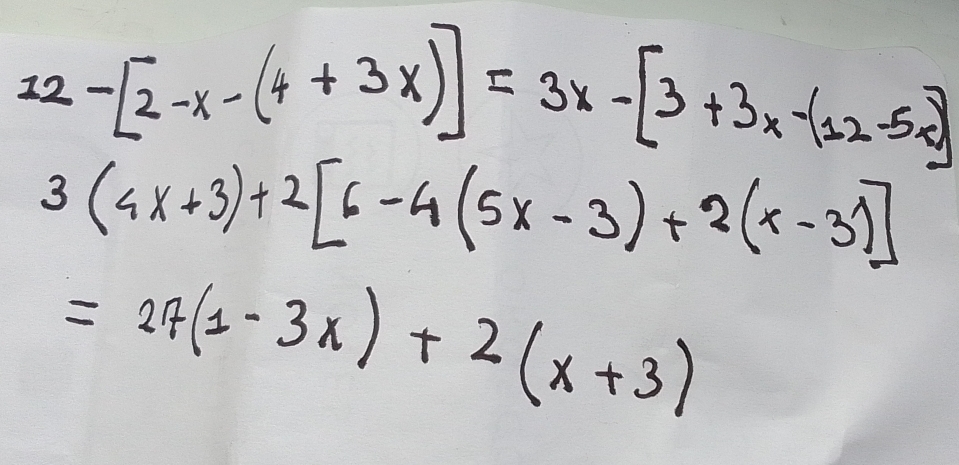 12 - [2 - x - (4 + 3x)] = 3x - [3 + 3x - (12 - 5x)]
3 (4x + 3) + 2 [6 - 4 (5x - 3) + 2 (x - 3)]
= 27 (1 - 3x) + 2 (x + 3)